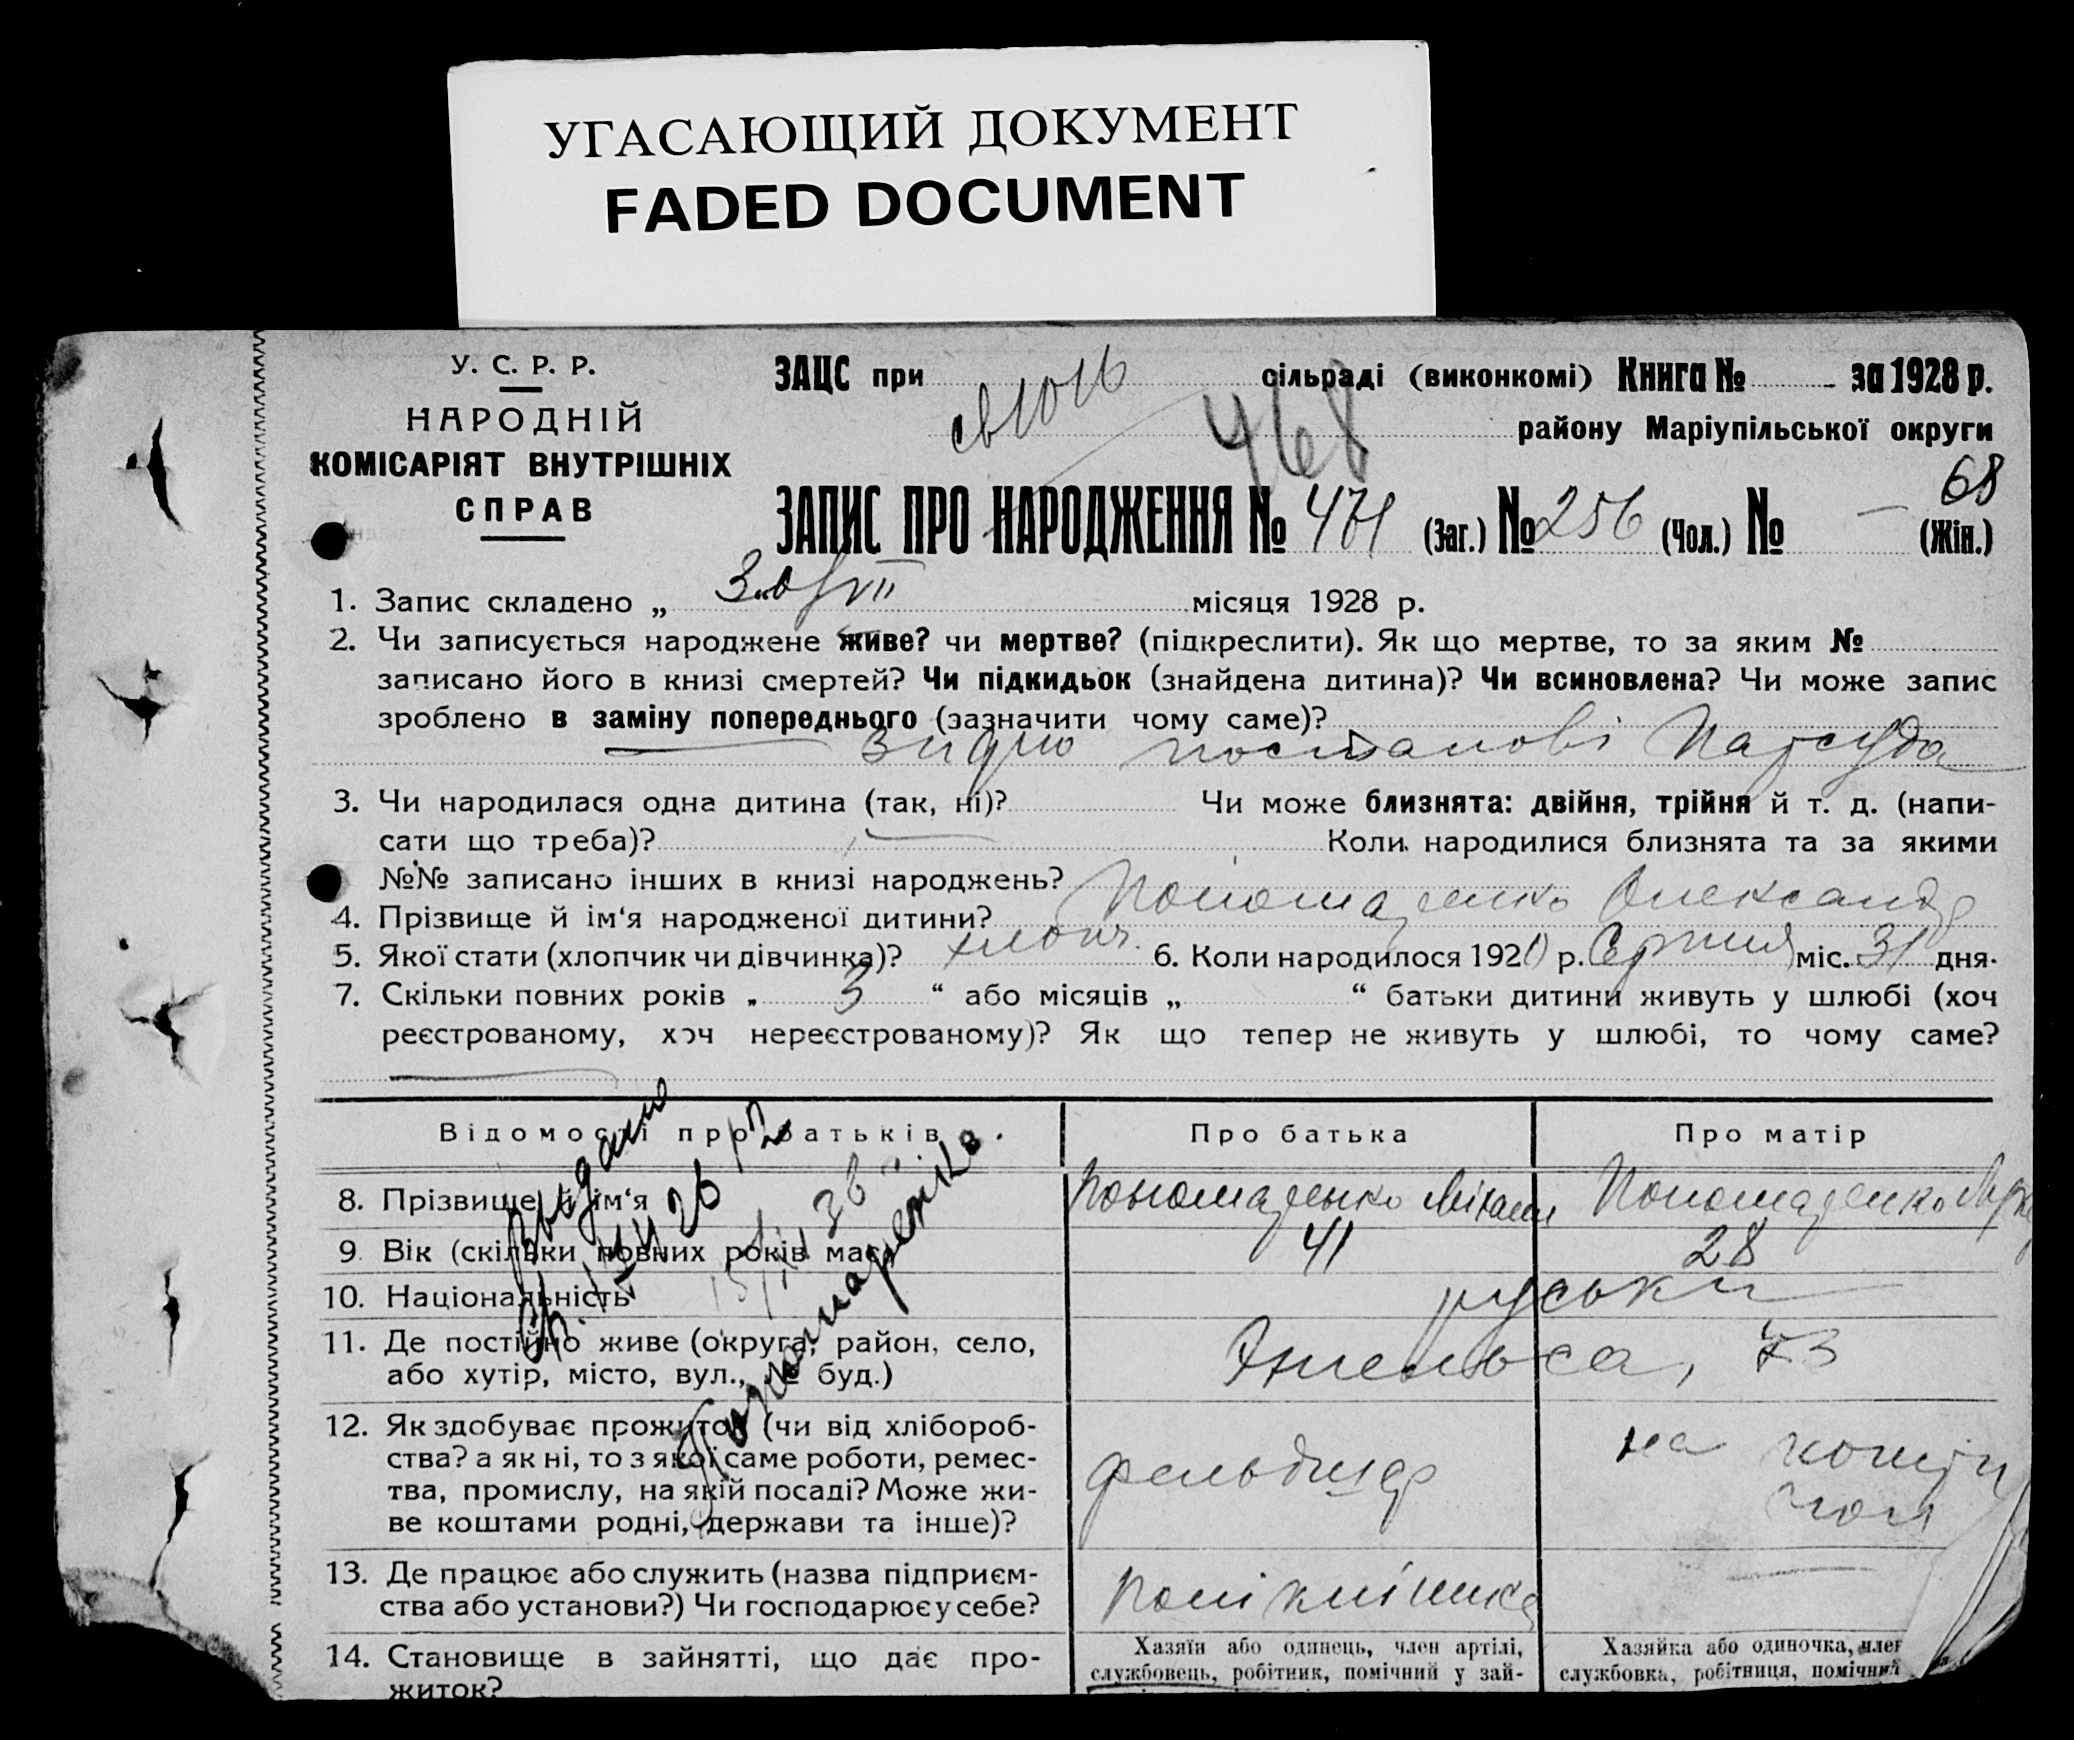 УГАСАЮЩИЙ ДОКУМЕНТ
FADED DOCUMENT
У. С. Р. Р.
НАРОДНІЙ
КОМІСАРІЯТ ВНУТРІШНІХ
СПРАВ
ЗАЦС при сільраді (виконкомі) Книга № за 1928 р.
468
району Маріупільської округи
68
ЗАПИС ПРО НАРОДЖЕННЯ № 471 (Заг.) № 256 (Чол.) № — (Жін.)
1. Запис складено „ місяця 1928 р.
2. Чи записується народжене живе? чи мертве? (підкреслити). Як що мертве, то за яким №
записано його в книзі смертей? Чи підкидьок (знайдена дитина)? Чи всиновлена? Чи може запис
зроблено в заміну попереднього (зазначити чому саме)?
згідно постанові Нарсуда
3. Чи народилася одна дитина (так, ні)? Чи може близнята: двійня, трійня й т. д. (напи-
сати що треба)? Коли народилися близнята та за якими
№№ записано інших в книзі народжень?
4. Прізвище й ім‘я народженої дитини? Пономаренко Олександр
5. Якої стати (хлопчик чи дівчинка)? хлопч. 6. Коли народилося 192 р. Серпня міс. 31 дня.
7. Скільки повних років „ 3 “ або місяців „ “ батьки дитини живуть у шлюбі (хоч
реєстрованому, хоч нереєстрованому)? Як що тепер не живуть у шлюбі, то чому саме?
Відомості про батьків Про батька Про матір
8. Прізвище й ім‘я Пономаренко Пономаренко
9. Вік (скільки повних років має) 41 28
10. Національність руськи
11. Де постійно живе (округа, район, село,
або хутір, місто, вул., № буд.) Енгельса, 73
12. Як здобуває прожиток (чи від хлібороб-
ства? а як ні, то з якої саме роботи, ремес-
тва, промислу, на якій посаді? Може жи-
ве коштами родні, держави та інше)?
фельдшер
на
13. Де працює або служить (назва підприєм-
ства або установи?) Чи господарює у себе?
Поліклініка
14. Становище в зайнятті, що дає про-
житок?
Хазяїн або одинець, член артілі,
службовець, робітник, помічний у зай-
Хазяйка або одиночка, член
службовка, робітниця, помічний
Выдано
Пономаренко